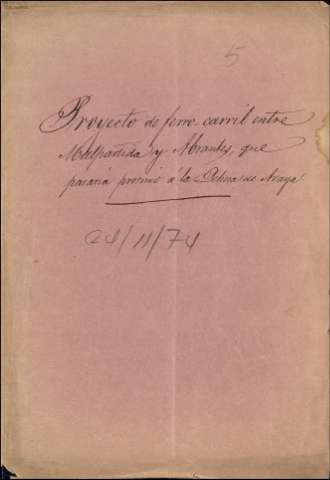 5
Proyecto de ferro-carril entre
Malpartida y Abrantes, que
pasaria proximo á la Dehesa de Araya
24/11/74